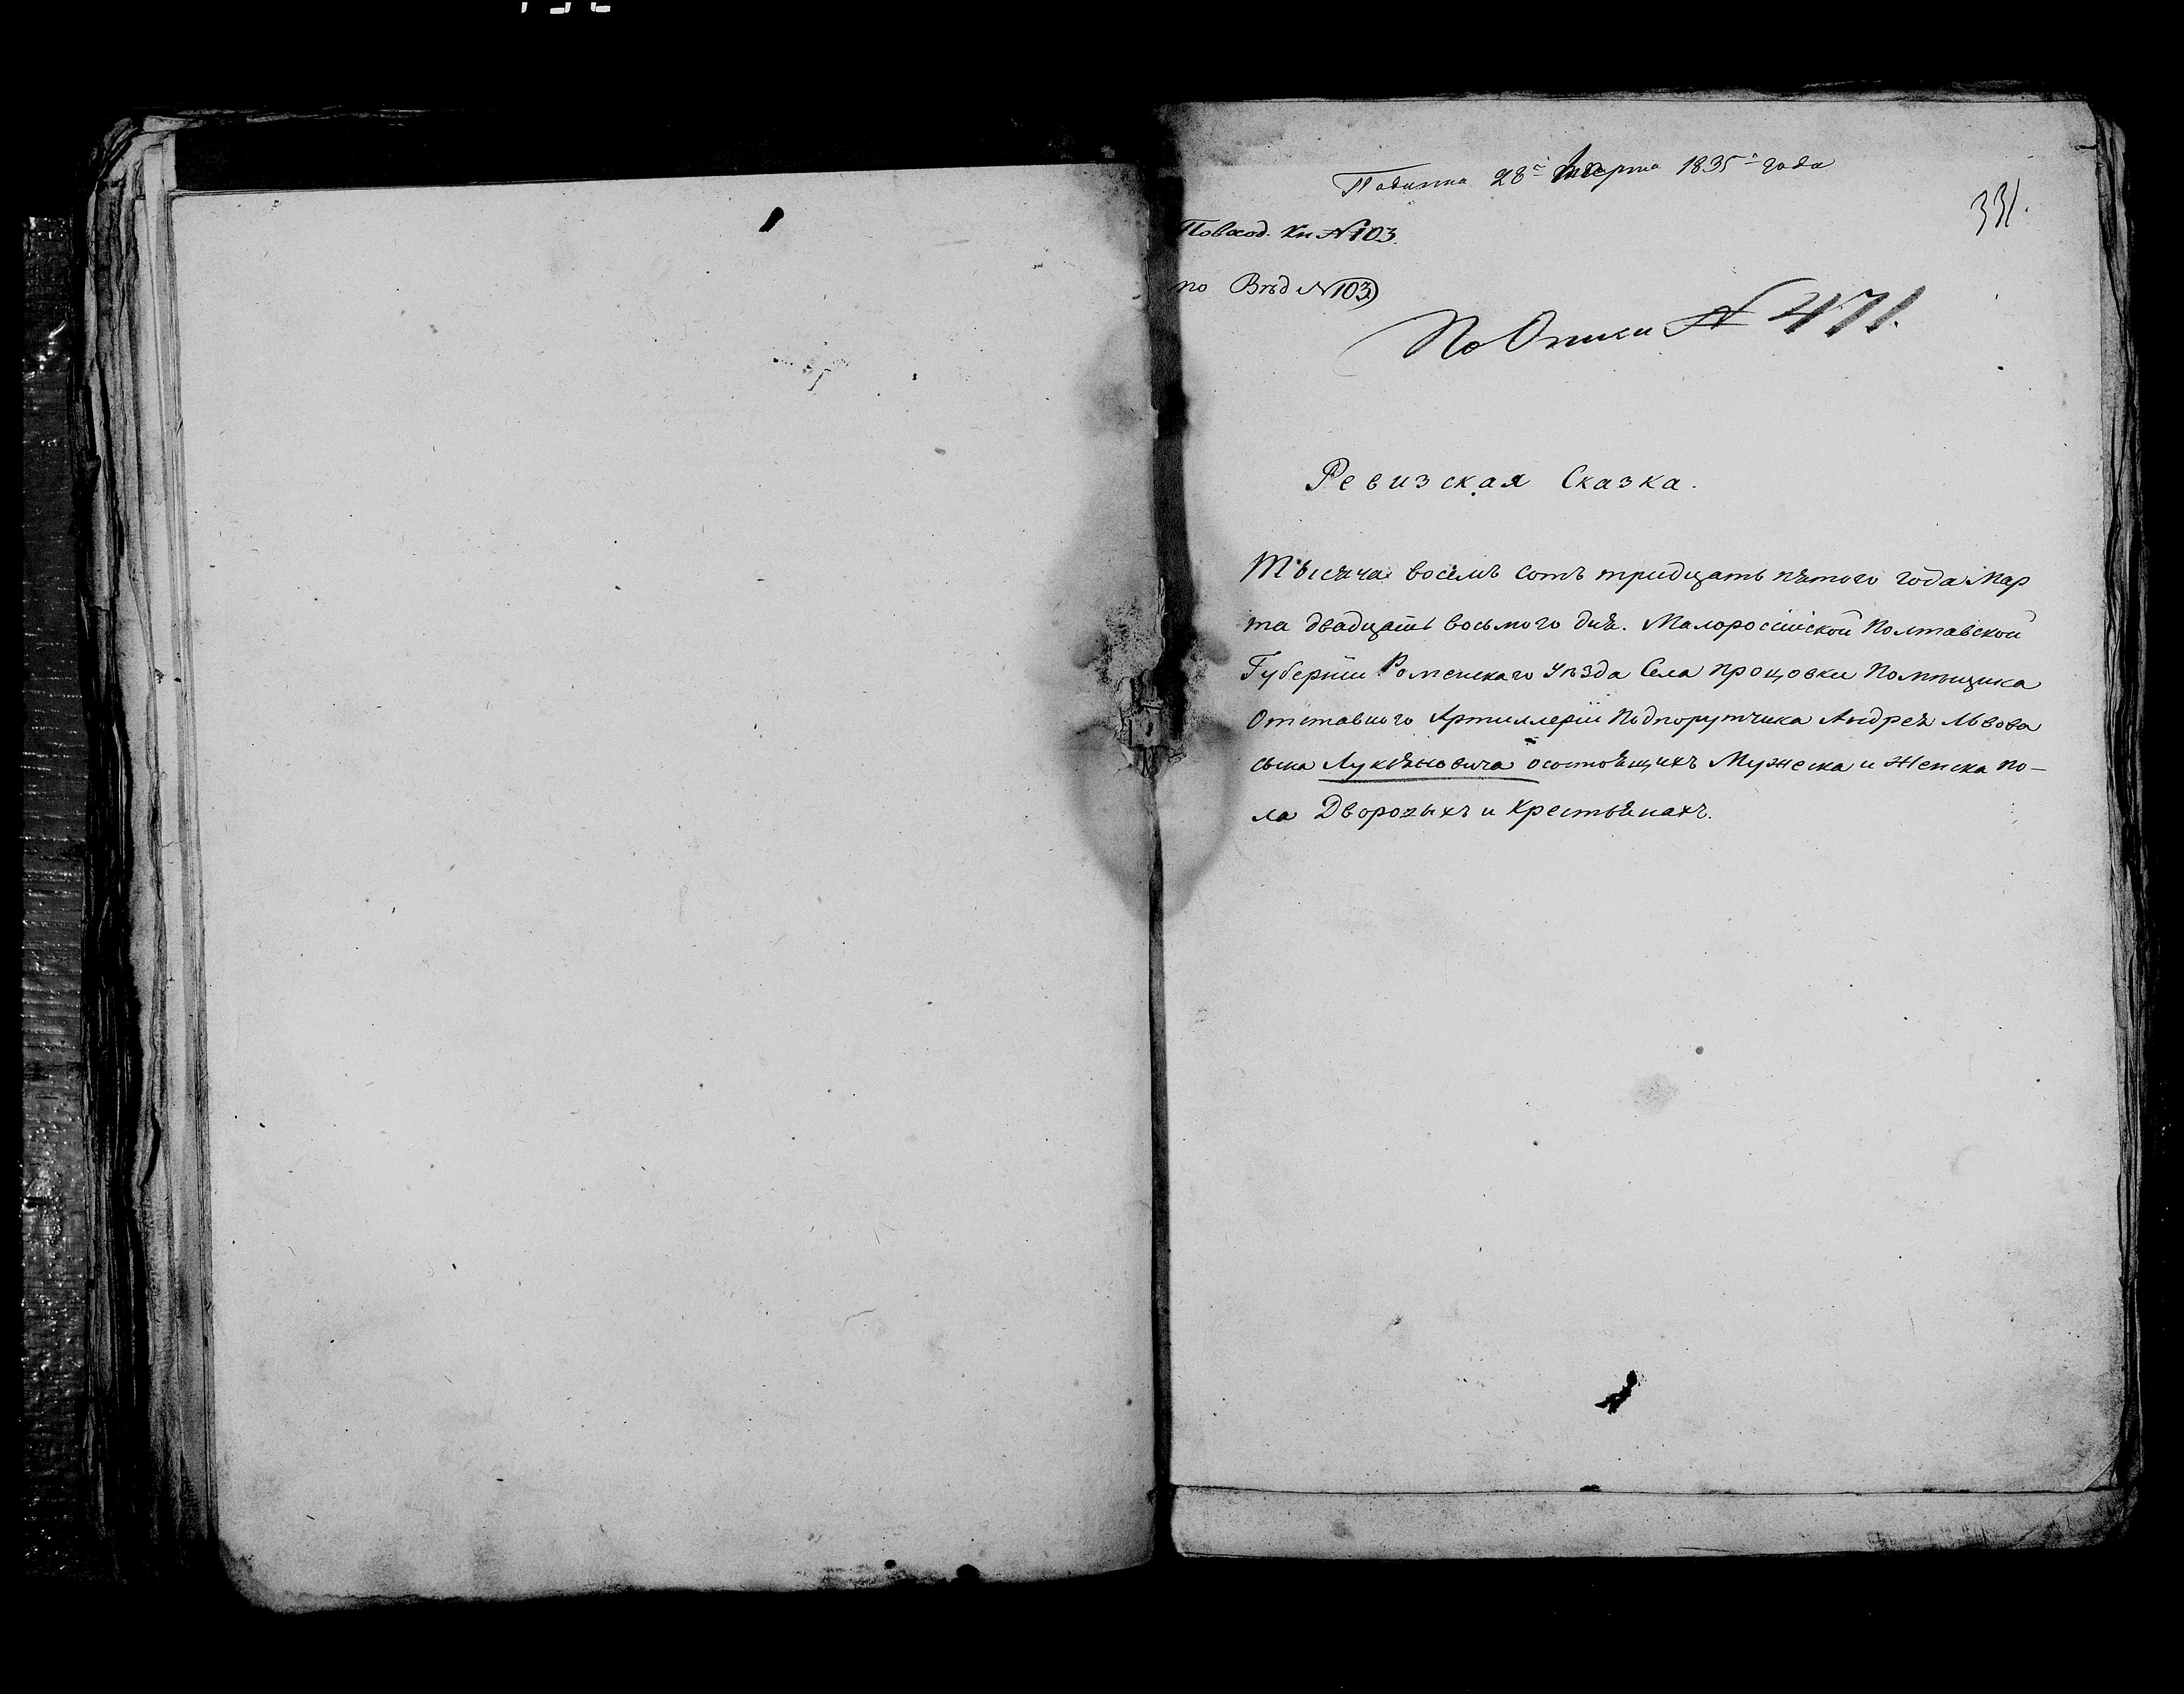 Подана 28г марта 1835г года
331.
По вход. Кн № 103.
по Вѣд № 103)
По Описи № 471.
Ревизская Сказка.
Тысяча восемь сотъ тридцать пятого года Мар
та двадцать восьмого дня. Малороссійской Полтавской
Губерніи Роменскаго Уѣзда Села Процовки Помѣщика
Отставного Артиллеріи Подпорутчика Андрея Львова
сына Лукьяновича о состоящихъ Мужеска и Женска по-
ла Дворовыхъ и Крестьянахъ.